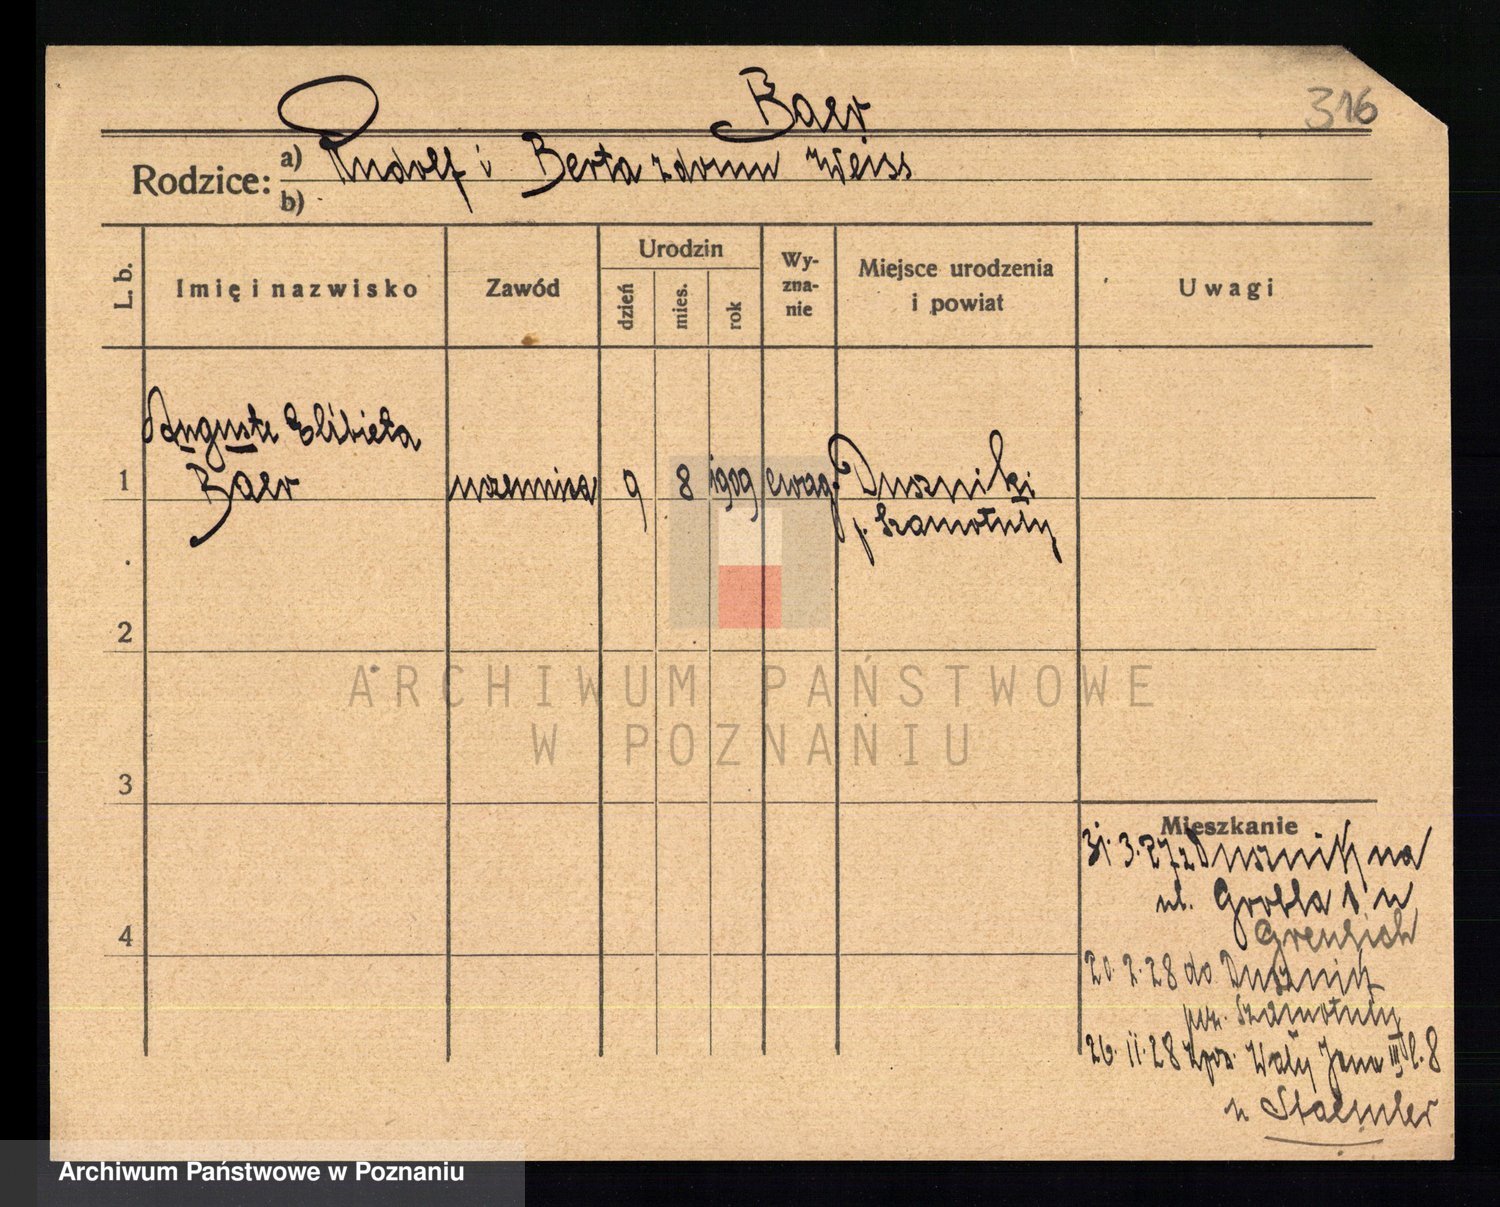 Baer
316
Rodzice: a) Rudolf i Berta z domu Weiss
b)
L. b.
Imię i nazwisko
Zawód
Urodzin
dzień
mies.
rok
Wy-
zna-
nie
Miejsce urodzenia
i powiat
Uwagi
Auguste Elżbieta
1 Baer uczennica 9 8 1909 ewag. Duszniki
p. Szamotuły
2
3
4
Mieszkanie
31.3.27 z Dusznik na
ul. Grobla 1 u
20.2.28 do Dusznik
pow. Szamotuły
26.11.28 Wały Jana III 8
u
ARCHIWUM PAŃSTWOWE
W POZNANIU
Archiwum Państwowe w Poznaniu